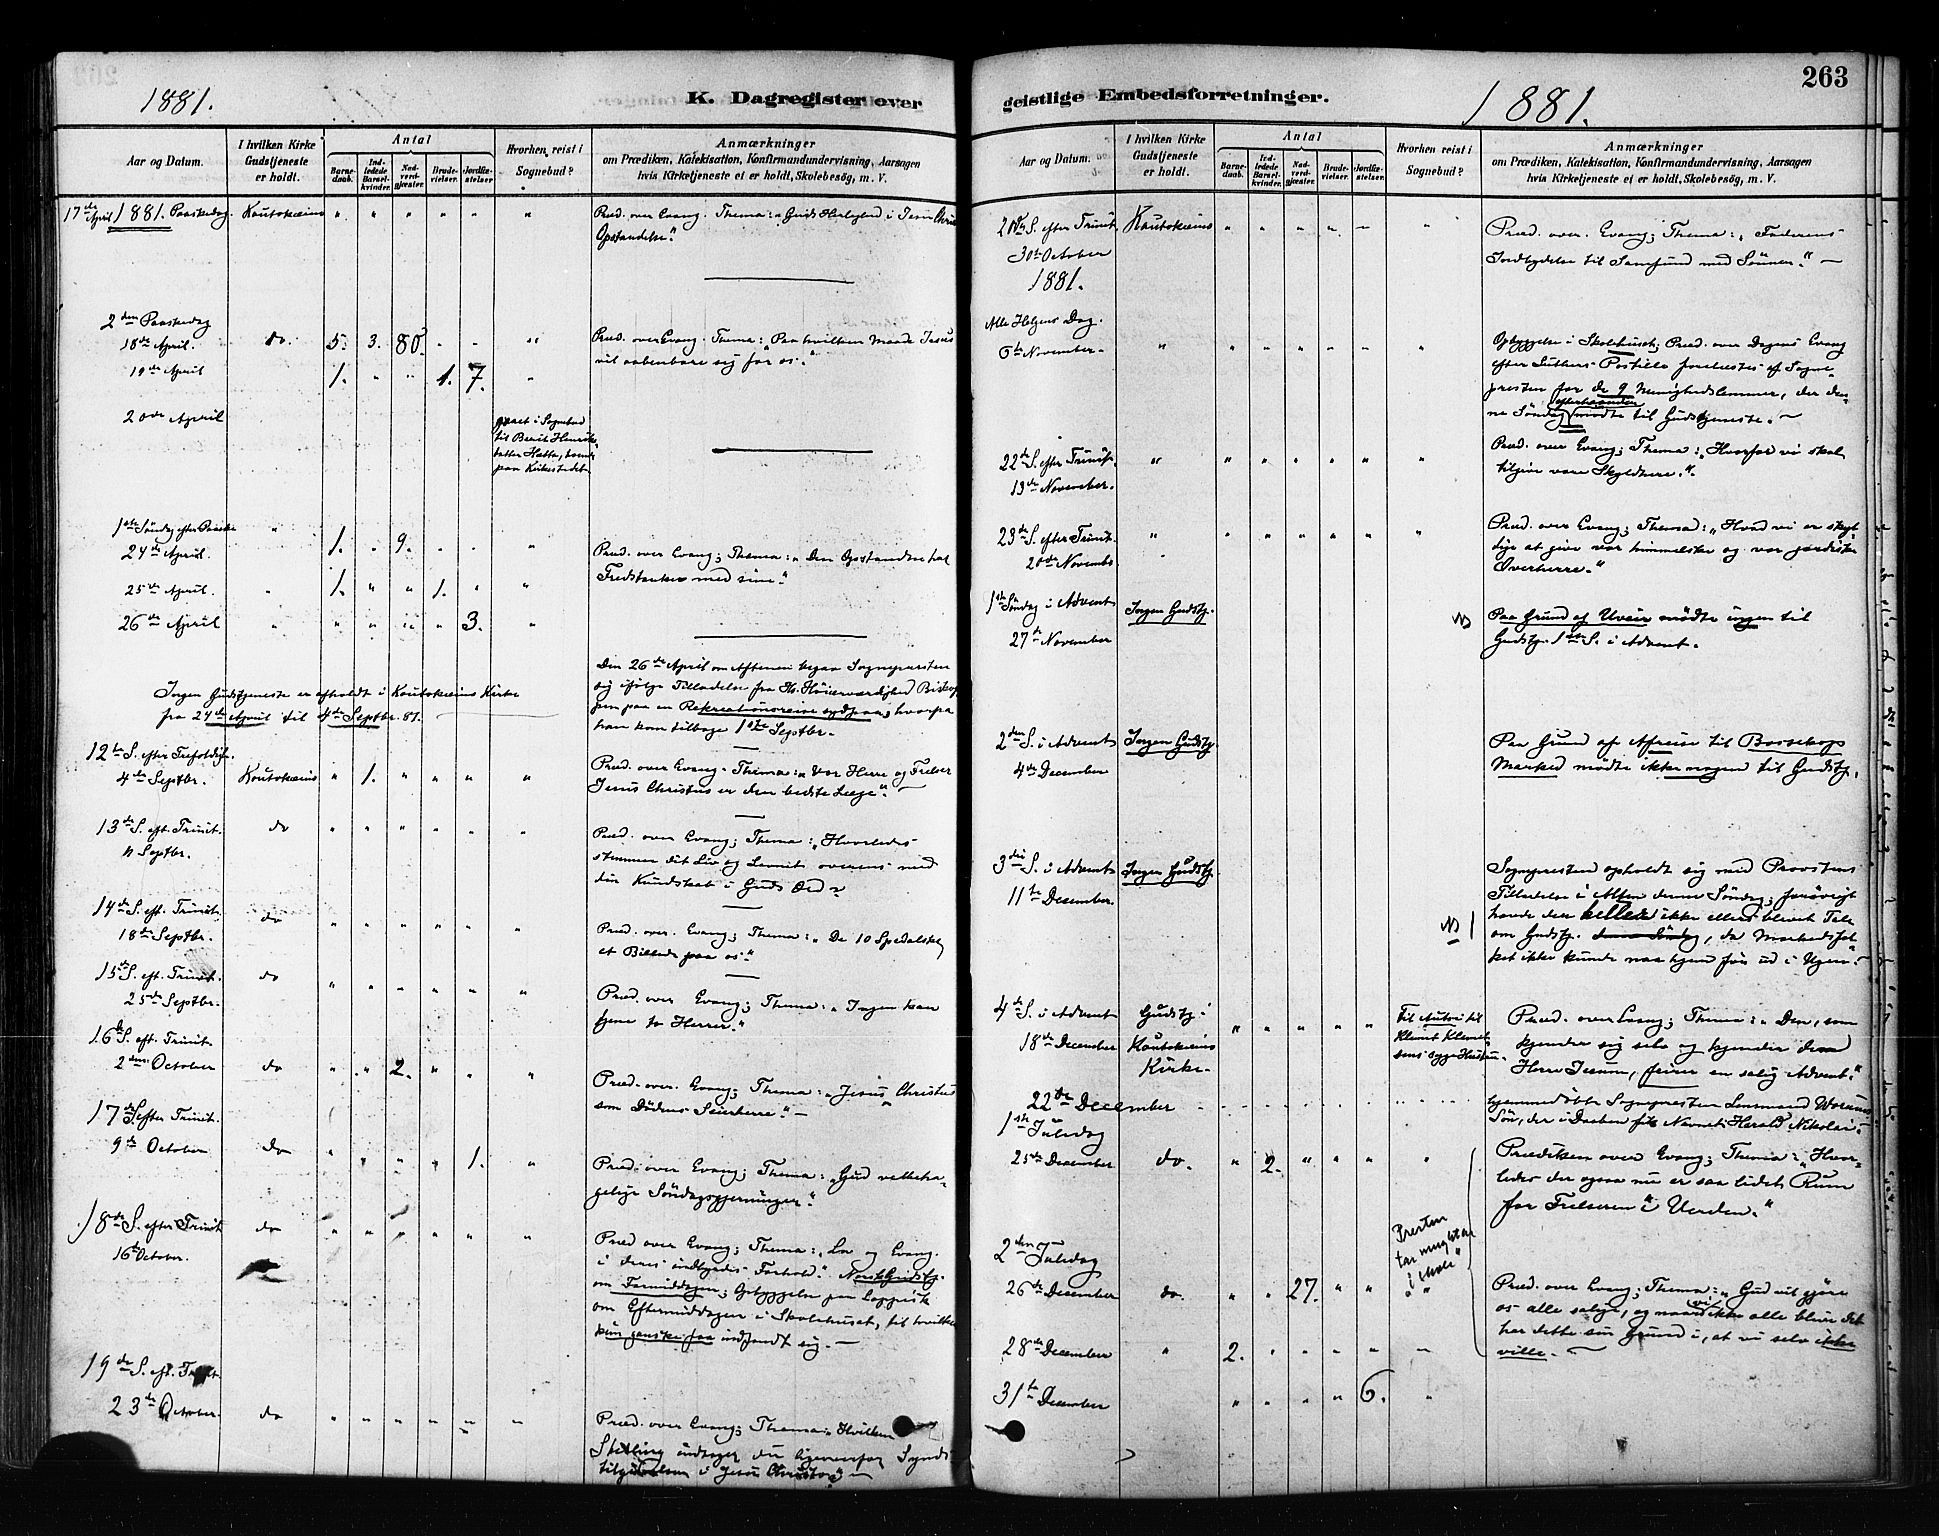 1881.
K. Dagregister over
Aar og Datum.
I hvilken Kirke
Gudstjeneste
er holdt.
Antal
Barne-
daab.
Ind-
ledede
Barsel-
kvinder.
Nad-
verd-
gjæster.
Brude-
vielser.
Jordfæ-
stelser.
Hvorhen reist i
Sognebud?
Anmærkninger
om Prædiken, Katekisation, Konfirmandundervisning, Aarsagen
hvis Kirketjeneste ei er holdt, Skolebesøg, m. V.
17de April 1881. Paaskedag. Koutokeino " " " " " "
Præd. over Evang. Thema: "Guds Herlighed i Jesu Christi
Opstandelse."
2den Paaskedag
18de April. do. 5. 3. 80. " " "
Præd. over Evang. Thema: "Paa hvilken Maade Jesus
vil aabenbare sig for os."
19de April 1. " " 1. 7. "
20de April
i Sognebud
til Berit Henriks-
datter Hætta,
paa Kirkestedet.
1ste Søndag efter Paaske
24de April. " 1. " 9. " " "
Præd. over Evang; Thema: "Den Opstandne
med sine."
25de April. " 1. " " 1. " "
26de April " " " " " 3. "
Den 26de April om Aftenen begav Sognepresten
sig ifølge Tilladelse fra Hs. Høiærværdighed Biskop-
pen paa en Rekreationsreise sydpaa, hvorfra
han kom tilbage 1ste Septbr.
Ingen Gudstjeneste er afholdt i Koutokeino Kirke
fra 24de April til 4de Septbr. 81.
12te S. efter Trefoldigh.
4de Septbr. Koutokeino " 1. " " " "
Præd. over Evang. Thema: "Vor Herre og Frelser
Jesus Christus er den bedste Læge."
13de S. eft. Trinit. do " " " " " "
11 Septbr.
Præd. over Evang; Thema: "Hvorledes
stemmer dit Liv og Levnet overens med
din Kundskab i Guds Ord?
14de S. eft. Trinit.
18de Septbr. do " " " " " "
Præd. over. Evang; Thema: "De 10 Spedalske
et Billede paa os."
15de S. eft. Trinit. do " " " " " "
25de Septbr.
Præd. over Evang; Thema: "Ingen kan
tjene to Herrer."
16de S. eft. Trinit.
2den October do " " 2. " " "
Præd. over. Evang; Thema: "Jesus Christus
som Dødens Seierherre."
17de S. efter Trinit.
9de October do " " " " 1. "
Præd. over Evang; Thema: "Gud velbeha-
gelige Søndagsgjerninger."
18de S. efter Trinit do " " " " " "
16de October.
Præd over Evang; Thema: "Lov og Evang.
i deres indbyrdes Forhold." Norsk Gudstj.
om Formiddagen; Opbyggelse paa Lappisk
om Eftermiddagen i Skolehuset, til hvilken
kun ganske faa indfandt sig.
19de S. eft.
23de October. do " " " " " "
Præd. over Evang; Thema: "Hvilken
Stilling indtager du ligeoverfor Synds-
tilgivelsen i Jesu Christo?
geistlige Embedsforretninger.
1881.
263
Aar og Datum.
I hvilken Kirke
Gudstjeneste
er holdt.
Antal
Barne-
daab.
Ind-
ledede
Barsel-
kvinder.
Nad-
verd-
gjæster.
Brude-
vielser.
Jordfæ-
stelser.
Hvorhen reist i
Sognebud?
Anmærkninger
om Prædiken, Katekisation, Konfirmandundervisning, Aarsagen
hvis Kirketjeneste ei er holdt, Skolebesøg, m. V.
20de S. efter Trinit. Koutokeino " " " " " "
30te October
1881.
Præd. over. Evang; Thema: "Faderens
Indbydelse til Samfund med Sønnen."
Alle Helgens Dag.
6te November. " " " " " " "
Opbyggelse i Skolehuset; Præd. over Dagens Evang
efter Luthers Postille forelæstes af Sogne-
presten for de 9 Menighedslemmer, der den-
ne Søndag efterhaanden mødte til Gudstjeneste.
22de S. efter Trinit. " " " " " " "
13de November.
Præd. over Evang; Thema: "Hvorfor vi skal
tilgive vore Skyldnere."
23de S. efter Trinit. " " " " " " "
20de Novembr.
Præd. over Evang; Thema: "Hvad vi er skyl-
dige at give vor himmelske og vor jordiske
Overherre."
1ste Søndag i Advent Ingen Gudstj.
27de November
Paa Grund af Uveir mødte ingen til
Gudstj. 1ste S. i Advent.
2den S. i Advent Ingen Gudstj.
4de December
Paa Grund af Afreise til Bossekop
Marked mødte ikke nogen til Gudstj.
3die S. i Advent Ingen Gudstj.
11te December.
Sognepresten opholdt sig med Provstens
Tilladelse i Alten denne Søndag; forøvrigt
havde der heller ikke ellers blevet Tale
om Gudstj. denne Søndag, da Markedsfol-
ket ikke kunde naa hjem før ud i Ugen.
4de S. i Advent Gudstj. i
18de December Koutokeino
Kirke. " " " " "
Til Autsi til
Klemet Klemet-
sens syge Hustru.
Præd. over Evang; Thema: "Den, som
kjender sig selv og kjender den
Herre Jesum, feirer en salig Advent."
22de December
hjemmedøbte Sognepresten Lensmand
Søn, der i Daaben fik Navnet: Harald Nikolai.
1ste Juledag
25de December do. " 2. " " " "
Prædiken over Evang; Thema: "Hvor-
ledes der ogsaa nu er saa lidet Rum
for Frelseren i Verden."
Presten
2den Juledag
26de December do. " " 27. " " "
Præd. over Evang; Thema: "Gud vil gjøre
os alle salige, og naar vi ikke alle blive det
har dette sin Grund i, at vi selv ikke
ville.
28de December " 2. " " " " "
31te December " " " " 6. "